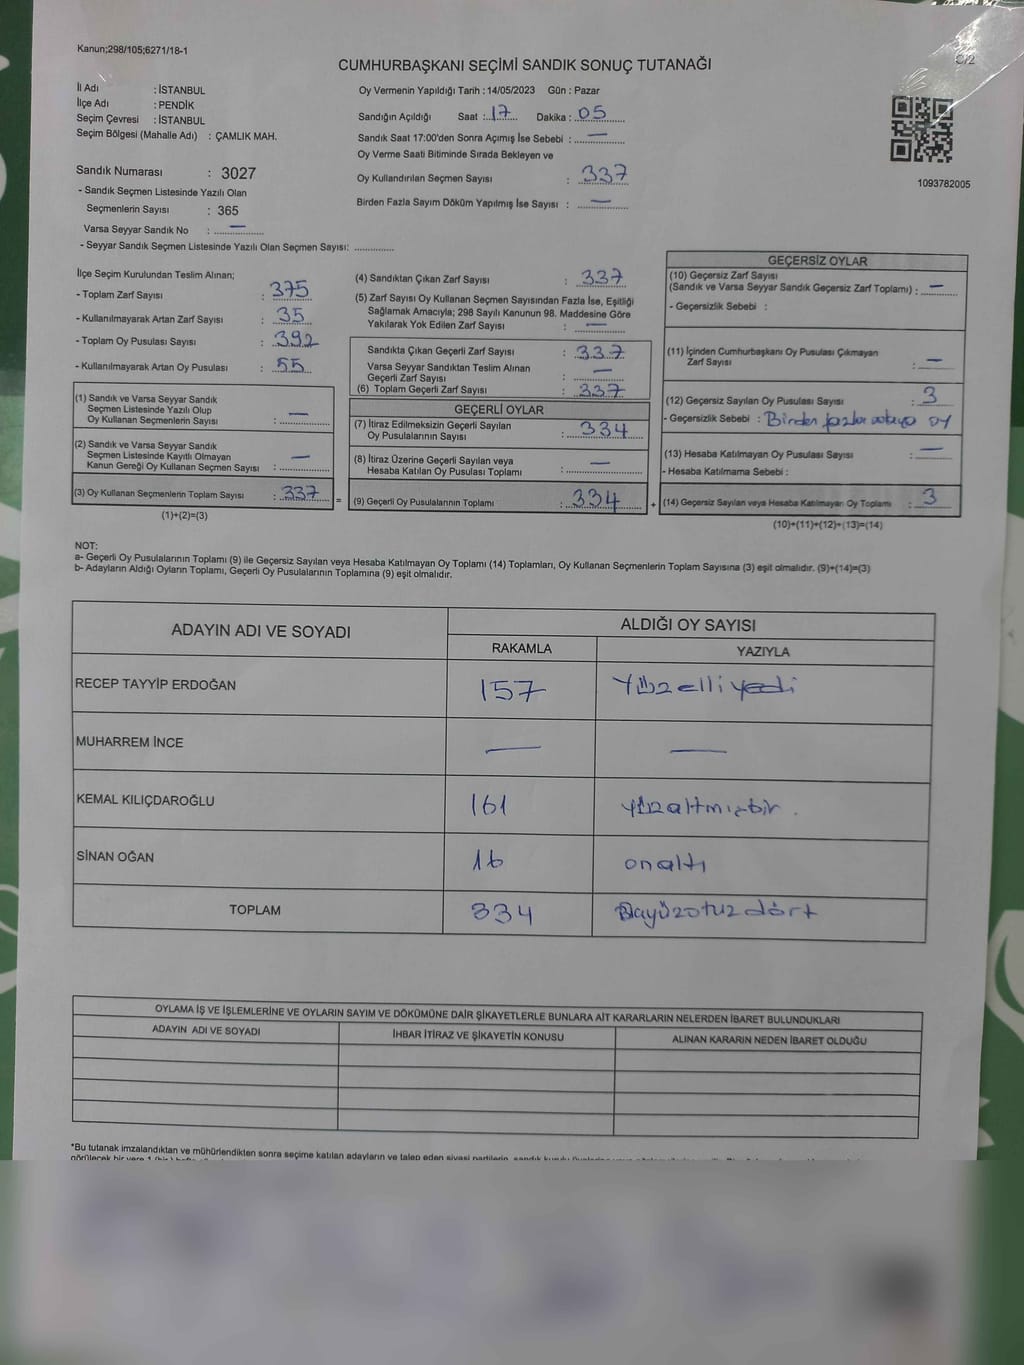 Kanun;298/105;6271/18-1
C/2
CUMHURBAŞKANI SEÇİMİ SANDIK SONUÇ TUTANAĞI
İl Adı : İSTANBUL
İlçe Adı : PENDİK
Seçim Çevresi : İSTANBUL
Seçim Bölgesi (Mahalle Adı) : ÇAMLIK MAH.
Sandık Numarası : 3027
- Sandık Seçmen Listesinde Yazılı Olan
Seçmenlerin Sayısı : 365
Varsa Seyyar Sandık No : —
- Seyyar Sandık Seçmen Listesinde Yazılı Olan Seçmen Sayısı: ..............
Oy Vermenin Yapıldığı Tarih : 14/05/2023 Gün : Pazar
Sandığın Açıldığı Saat : 17 Dakika : 05
Sandık Saat 17:00'den Sonra Açımış İse Sebebi : —
Oy Verme Saati Bitiminde Sırada Bekleyen ve
Oy Kullandırılan Seçmen Sayısı : 337
Birden Fazla Sayım Döküm Yapılmış İse Sayısı : —
1093782005
İlçe Seçim Kurulundan Teslim Alınan;
- Toplam Zarf Sayısı : 375
- Kullanılmayarak Artan Zarf Sayısı : 35
- Toplam Oy Pusulası Sayısı : 392
- Kullanılmayarak Artan Oy Pusulası : 55
(1) Sandık ve Varsa Seyyar Sandık
Seçmen Listesinde Yazılı Olup
Oy Kullanan Seçmenlerin Sayısı : —
(2) Sandık ve Varsa Seyyar Sandık
Seçmen Listesinde Kayıtlı Olmayan
Kanun Gereği Oy Kullanan Seçmen Sayısı : —
(3) Oy Kullanan Seçmenlerin Toplam Sayısı : 337 =
(1)+(2)=(3)
(4) Sandıktan Çıkan Zarf Sayısı : 337
(5) Zarf Sayısı Oy Kullanan Seçmen Sayısından Fazla İse, Eşitliği
Sağlamak Amacıyla; 298 Sayılı Kanunun 98. Maddesine Göre
Yakılarak Yok Edilen Zarf Sayısı : —
Sandıkta Çıkan Geçerli Zarf Sayısı : 337
Varsa Seyyar Sandıktan Teslim Alınan
Geçerli Zarf Sayısı : —
(6) Toplam Geçerli Zarf Sayısı : 337
GEÇERLİ OYLAR
(7) İtiraz Edilmeksizin Geçerli Sayılan
Oy Pusulalarının Sayısı : 334
(8) İtiraz Üzerine Geçerli Sayılan veya
Hesaba Katılan Oy Pusulası Toplamı : —
(9) Geçerli Oy Pusulalarının Toplamı : 334 +
GEÇERSİZ OYLAR
(10) Geçersiz Zarf Sayısı
(Sandık ve Varsa Seyyar Sandık Geçersiz Zarf Toplamı) : —
- Geçersizlik Sebebi :
(11) İçinden Cumhurbaşkanı Oy Pusulası Çıkmayan
Zarf Sayısı : —
(12) Geçersiz Sayılan Oy Pusulası Sayısı : 3
- Geçersizlik Sebebi : Birden fazla adaya oy
(13) Hesaba Katılmayan Oy Pusulası Sayısı : —
- Hesaba Katılmama Sebebi :
(14) Geçersiz Sayılan veya Hesaba Katılmayan Oy Toplamı : 3
(10)+(11)+(12)+(13)=(14)
NOT:
a- Geçerli Oy Pusulalarının Toplamı (9) ile Geçersiz Sayılan veya Hesaba Katılmayan Oy Toplamı (14) Toplamları, Oy Kullanan Seçmenlerin Toplam Sayısına (3) eşit olmalıdır. (9)+(14)=(3)
b- Adayların Aldığı Oyların Toplamı, Geçerli Oy Pusulalarının Toplamına (9) eşit olmalıdır.
ADAYIN ADI VE SOYADI
ALDIĞI OY SAYISI
RAKAMLA YAZIYLA
RECEP TAYYİP ERDOĞAN 157 Yüzelliyedi
MUHARREM İNCE — —
KEMAL KILIÇDAROĞLU 161 yüzaltmışbir.
SİNAN OĞAN 16 onaltı
TOPLAM 334 üçyüzotuzdört
OYLAMA İŞ VE İŞLEMLERİNE VE OYLARIN SAYIM VE DÖKÜMÜNE DAİR ŞİKAYETLERLE BUNLARA AİT KARARLARIN NELERDEN İBARET BULUNDUKLARI
ADAYIN ADI VE SOYADI İHBAR İTİRAZ VE ŞİKAYETİN KONUSU ALINAN KARARIN NEDEN İBARET OLDUĞU
*Bu tutanak imzalandıktan ve mühürlendikten sonra seçime katılan adayların ve talep eden siyasi partilerin, sandık kurulu